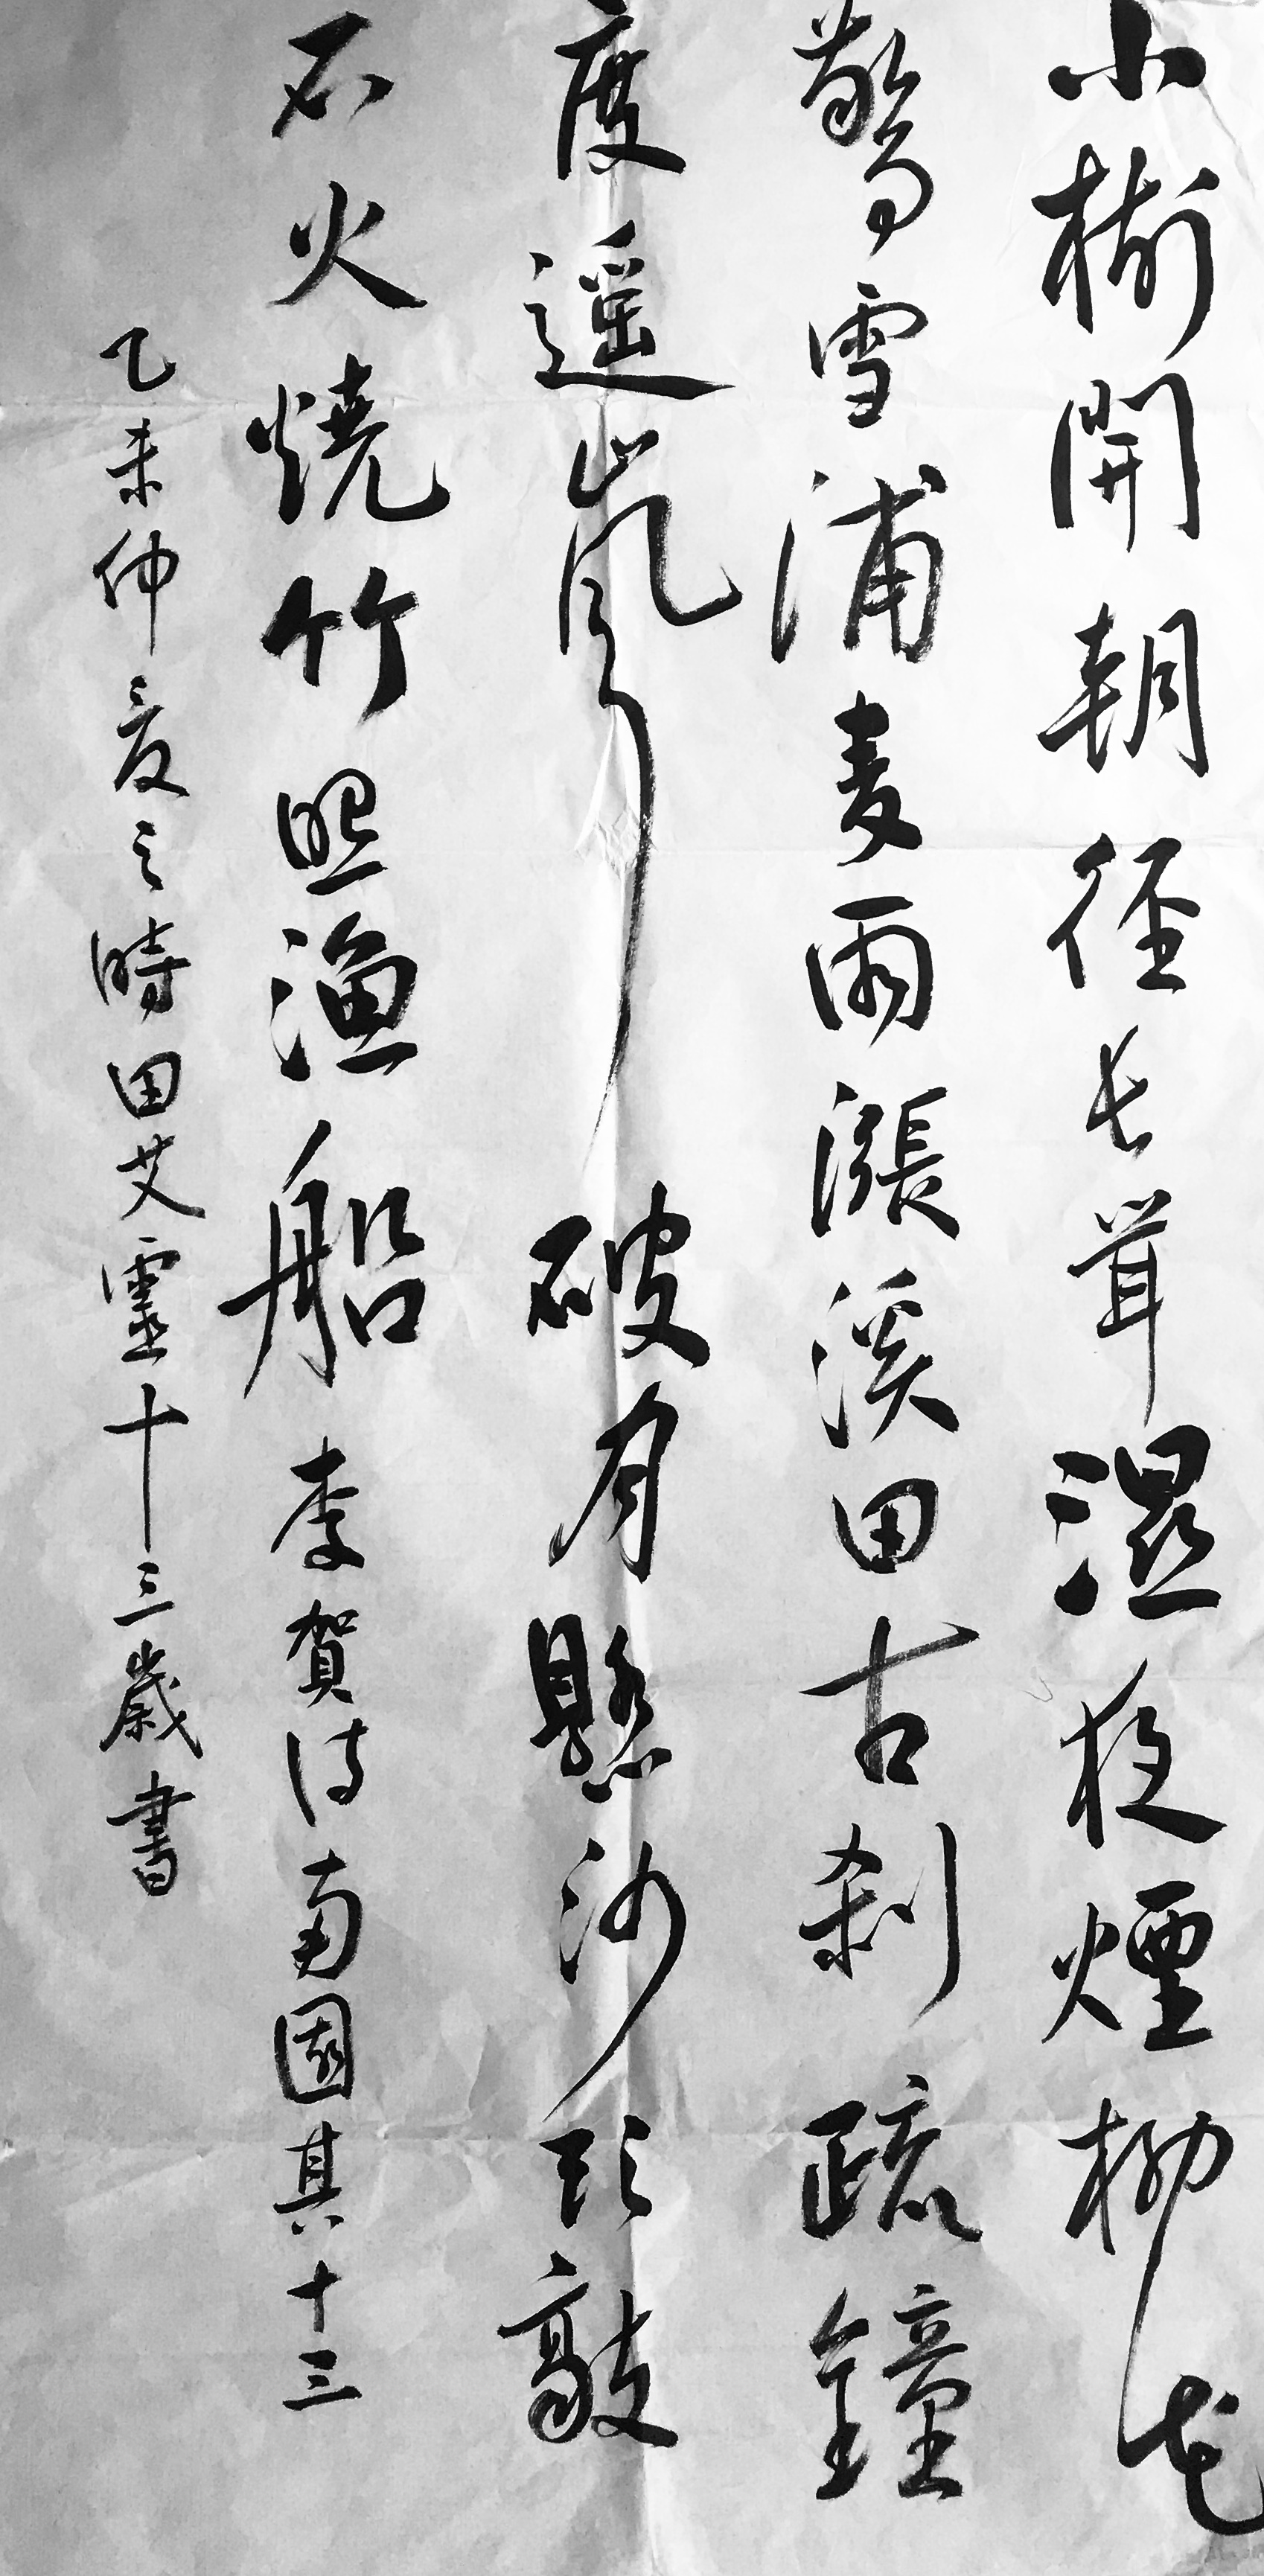 小樹開朝徑長茸濕夜煙柳花
驚雪浦麦雨漲溪田古刹疏鐘
度遥嵐破月懸沙頭敲
石火燒竹照渔船李賀诗南園其十三
乙未仲夏之時田艾靈十三歲書